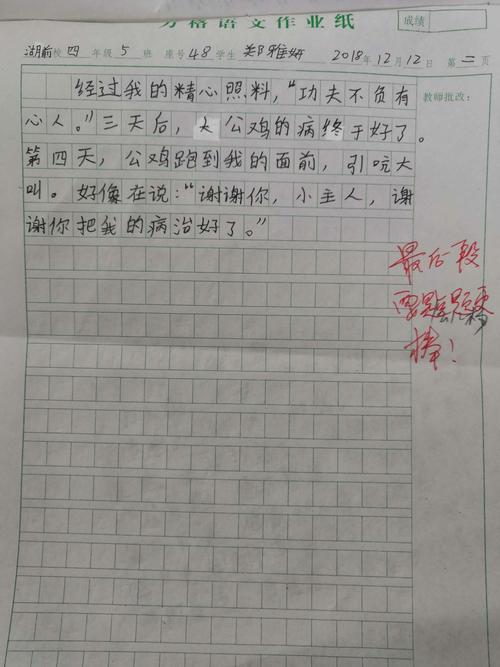 方格语文作业纸
成绩
湖前校四年级5班 座号48学生郑雅妍 2018年12月12日 第二页
教师批改：
经过我的精心照料，“功夫不负有
心人。”三天后，大公鸡的病终于好了。
第四天，公鸡跑到我的面前，引吭大
叫。好像在说：“谢谢你，小主人，谢
谢你把我的病治好了。”
最后一段
要点题更
棒！